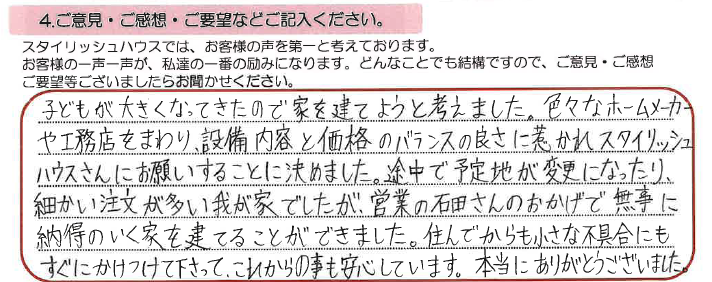 4.ご意見・ご感想・ご要望などご記入ください。
スタイリッシュハウスでは、お客様の声を第一と考えております。
お客様の一声一声が、私達の一番の励みになります。どんなことでも結構ですので、ご意見・ご感想
ご要望等ございましたらお聞かせください。
子どもが大きくなってきたので家を建てようと考えました。色々なホームメーカー
や工務店をまわり、設備内容と価格のバランスの良さに惹かれスタイリッシュ
ハウスさんにお願いすることに決めました。途中で予定地が変更になったり、
細かい注文が多い我が家でしたが、営業の石田さんのおかげで無事に
納得のいく家を建てることができました。住んでからも小さな不具合にも
すぐにかけつけて下さって、これからの事も安心しています。本当にありがとうございました。